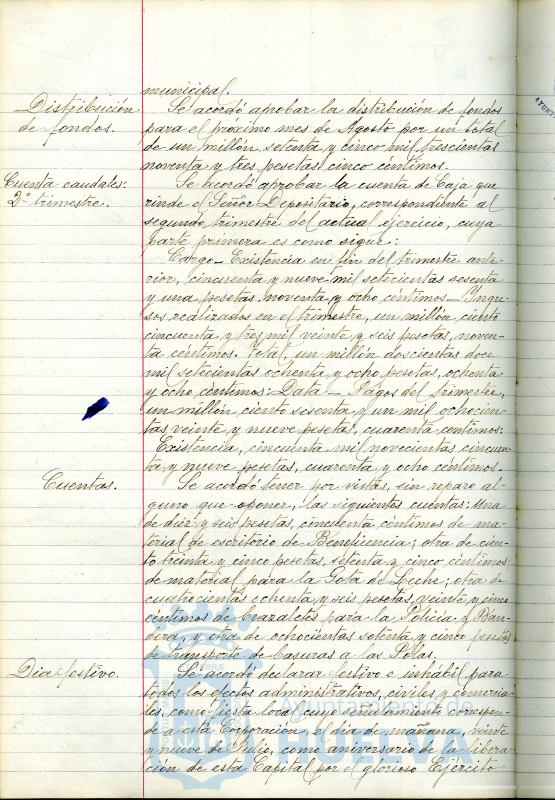 municipal.
Distribución de fondos.
Se acordó aprobar la distribución de fondos
para el próximo mes de Agosto por un total
de un millón, setenta y cinco mil trescientas
noventa y tres, pesetas cinco céntimos.
Cuenta caudales:
2º trimestre.
Se acordó, aprobar la cuenta de Caja que
rinde el Señor Depositario, correspondiente al
segundo trimestre del actual ejercicio, cuya
parte primera es como sigue:
Cargo - Existencia en fin del trimestre ante-
rior, cincuenta y nueve mil setecientas sesenta
y una pesetas, noventa y ocho céntimos - Ingre-
sos realizados en el trimestre, un millón ciento
cincuenta y tres mil veinte y seis pesetas, noven-
ta céntimos. Total, un millón doscientas doce
mil setecientas ochenta y ocho pesetas, ochenta
y ocho céntimos: Data - Pagos del trimestre,
un millón, ciento sesenta y un mil ochocien-
tas veinte y nueve pesetas, cuarenta céntimos:
Existencia, cincuenta mil novecientas cincuen-
ta y nueve pesetas, cuarenta y ocho céntimos.
Cuentas.
Se acordó tener por vistas, sin reparo al-
guno que oponer, las siguientes cuentas: Una
de diez y seis pesetas, cincuenta céntimos de ma-
terial de escritorio de Beneficencia; otra de cien-
to treinta y cinco pesetas, setenta y cinco céntimos
de material para la Gota de Leche; otra de
cuatrocientas ochenta y seis pesetas, veinte y cinco
céntimos de brazaletes para la Policía y Ban-
dera, y otra de ochocientas setenta y cinco pesetas
de transporte de basuras a las Rotas.
Dia festivo.
Se acordó declarar festivo e inhábil para
todos los efectos administrativos, civiles y comercia-
les, como fiesta local cuyo señalamiento correspon-
de a esta Corporación, el día de mañana, veinte
y nueve de Julio, como aniversario de la libera-
ción de esta Capital por el glorioso Ejército
Ayuntamiento de